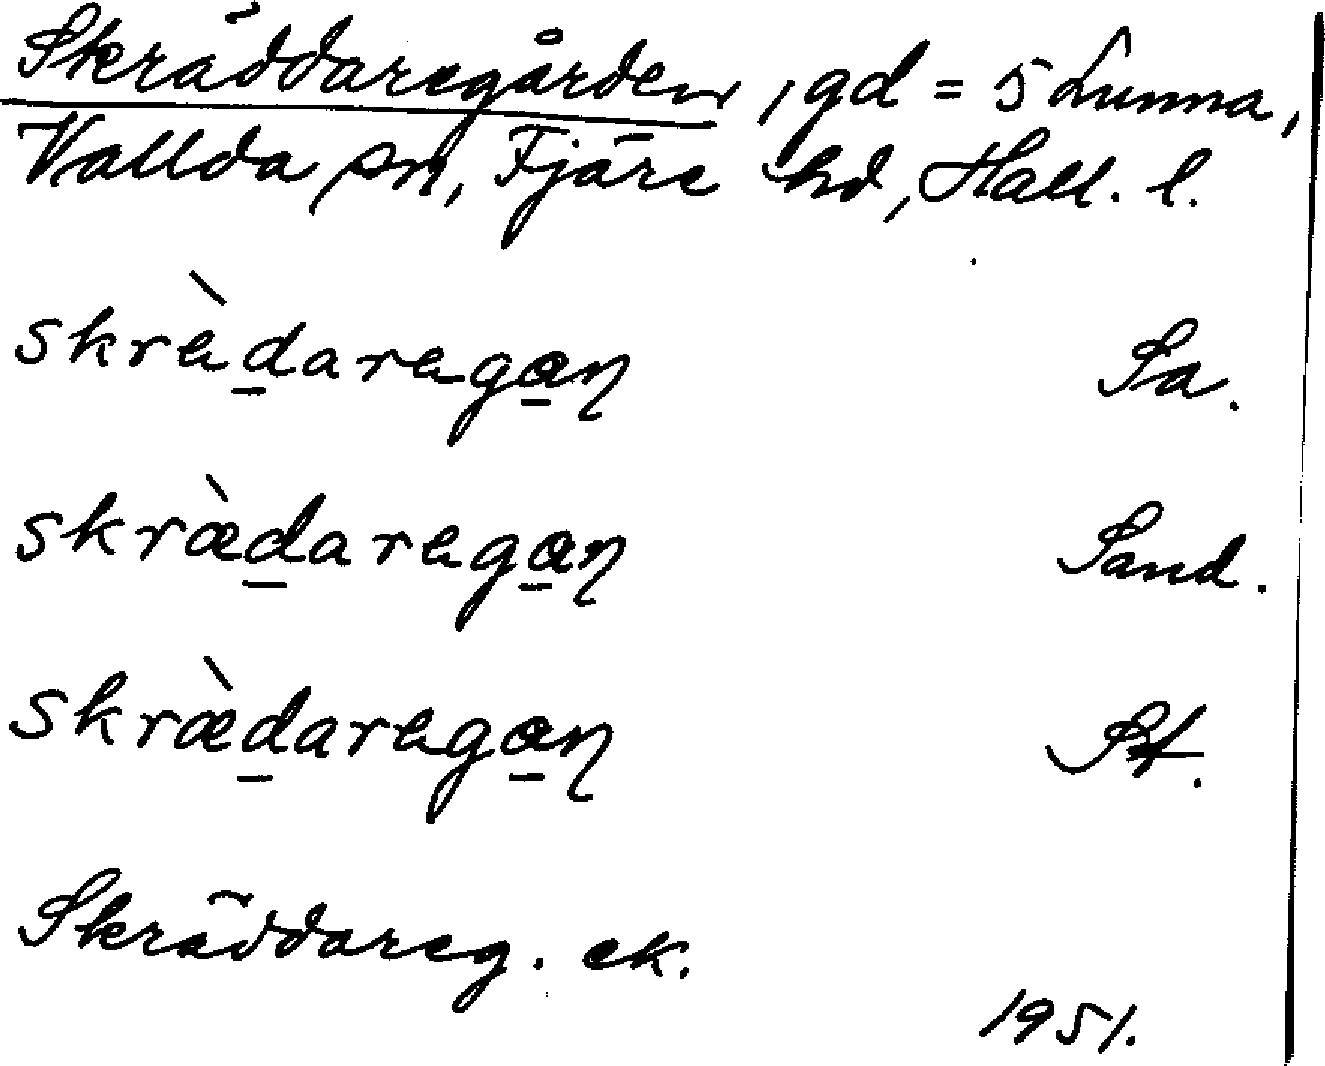 Skräddaregården, gd = 5 Lunna,
Vallda sn, Fjäre hd, Hall. l.
skrèd̲arega̲ɳ Sa.
skræ̀d̲arega̲ɳ Sand.
skræ̀d̲arega̲ɳ St.
Skräddareg. ek.
1951.